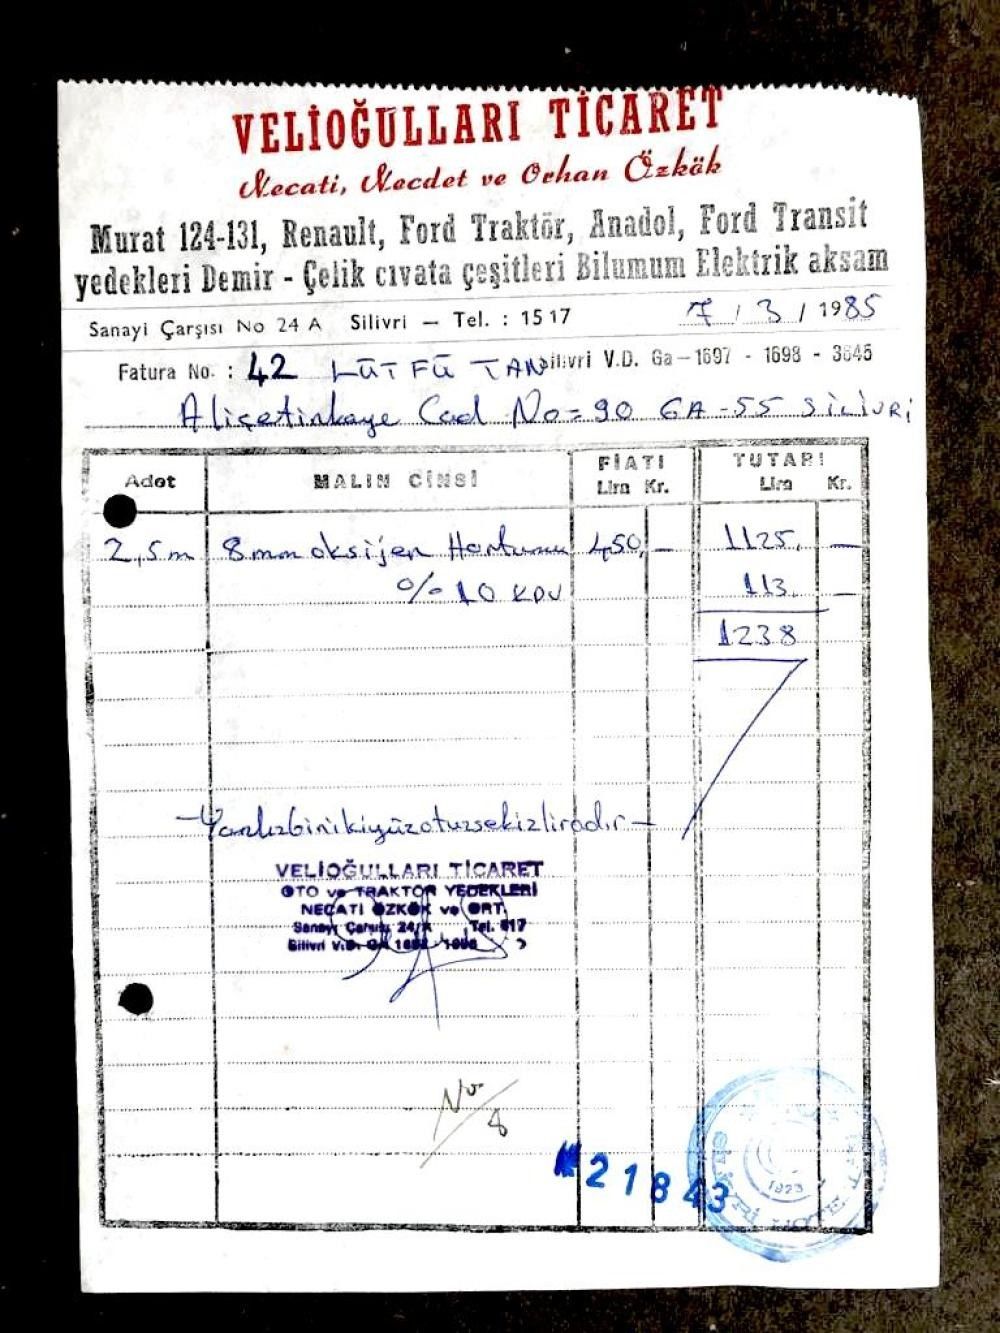 VELİOĞULLARI TİCARET
Necati, Necdet ve Orhan Özkök
Murat 124-131, Renault, Ford Traktör, Anadol, Ford Transit
yedekleri Demir - Çelik cıvata çeşitleri Bilumum Elektrik aksam
Sanayi Çarşısı No 24 A Silivri — Tel. : 1517 7 / 3 / 1985
Fatura No. : 42 LÜTFÜ TAN Silivri V.D. Ga — 1697 - 1698 - 3645
Aliçetinkaye Cad No=90 GA-55 SİLİVRİ
Adet MALIN CİNSİ FİATI TUTARI
Lira Kr. Lira Kr.
2,5m 8mm oksijen Hortumu 450,— 1125,—
%10 KDV 113.—
1238
—Yanlızbinikiyüzotuzsekizliradır—
VELİOĞULLARI TİCARET
OTO ve TRAKTÖR YEDEKLERİ
NECATİ ÖZKÖK ve ORT.
Sanayi Çarşısı 24/A Tel. 517
Silivri V.D. GA 1698
No
8
21843
SİLİVRİ
1923